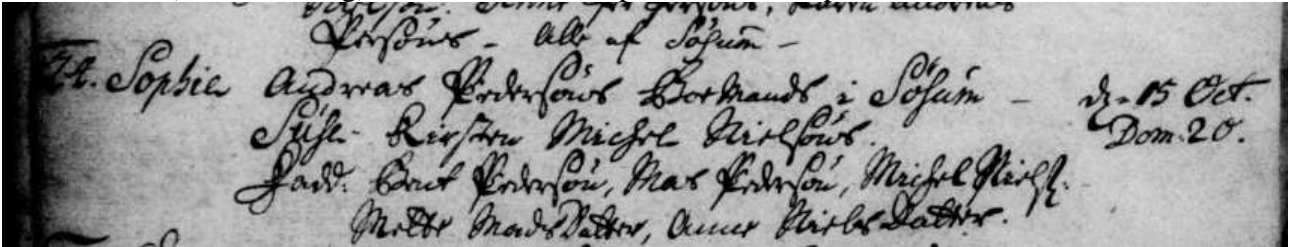 Persøns - Alle af Søsum -
24. Sophie Andreas Pedersøns Boemands i Søsum - d. 15 Oct.
Susc. Kirsten Michel Nielsøns. Dom. 20.
Fadd. Bent Pedersøn, Mas Pedersøn, Michel Niels.
Mette Mads Datter, Anne Niels Datter.